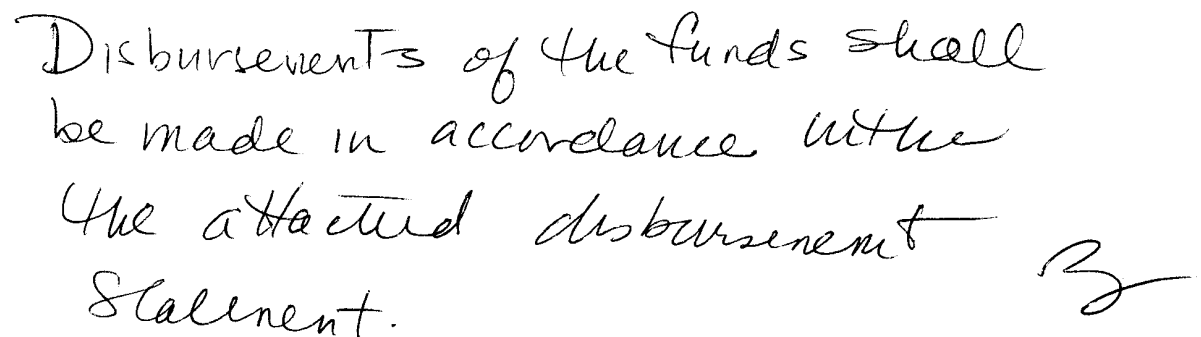 Disbursements of the funds shall
be made in accordance with
the attached disbursement
Statement.